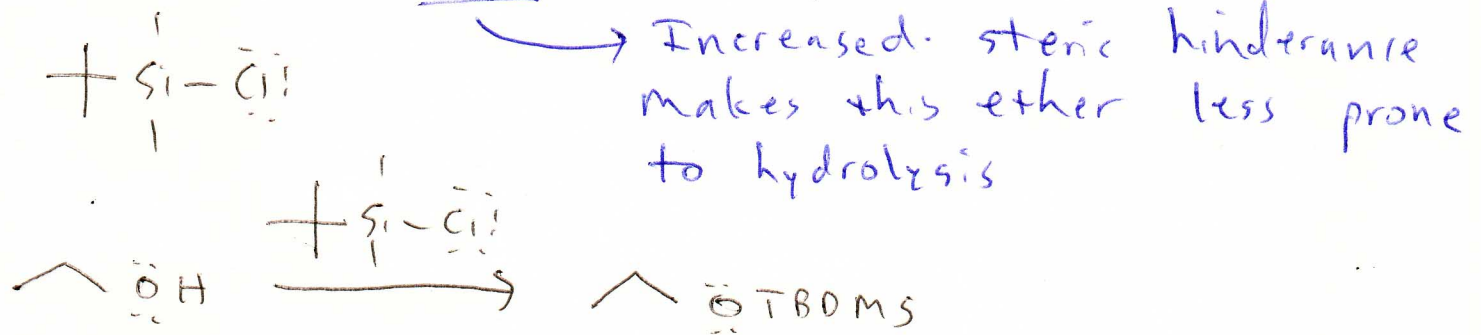 Increased. steric hinderance
Si-Cl:
makes this ether less prone
to hydrolysis
Si-Cl:
ÖH
ÖTBDMS